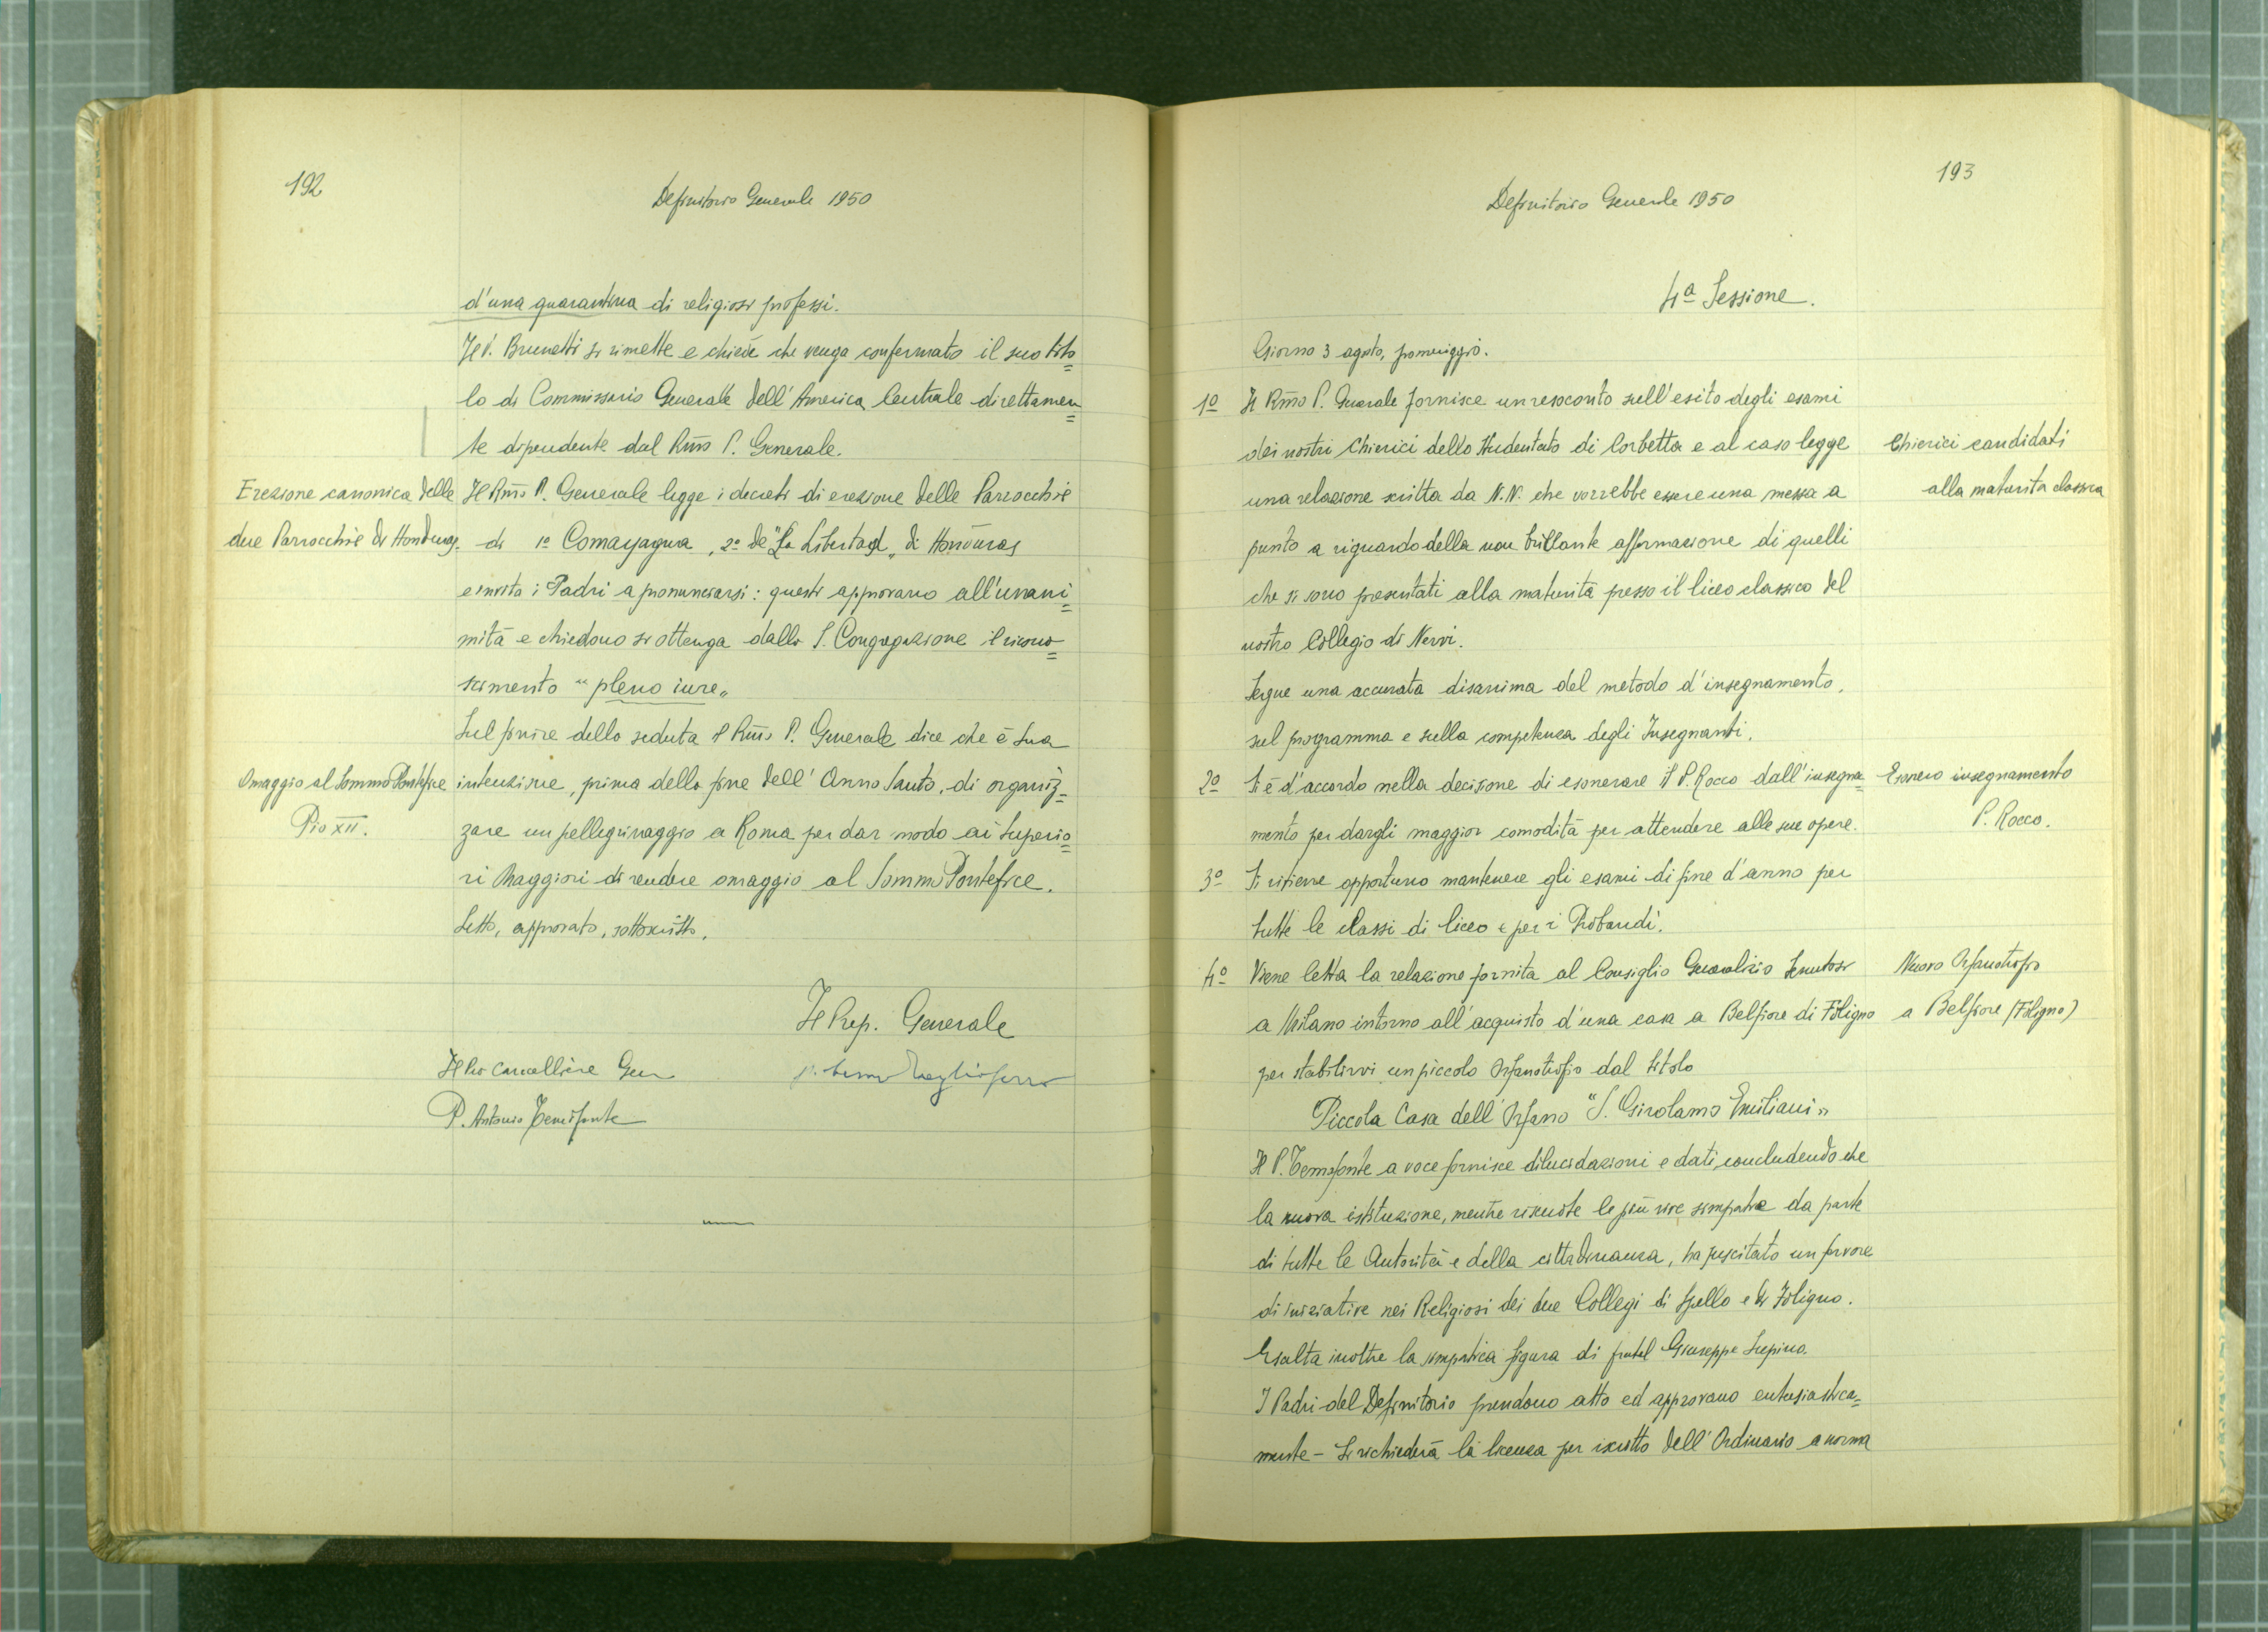 192
Definitorio Generale 1950
d'una quarantina di religiosi professi.
Il P. Brunetti si rimette e chiede che venga confermato il suo tito=
lo di Commissario Generale dell'America Centrale direttamen=
te dipendente dal Rmo P. Generale.
Erezione canonica delle
due Parrocchie di Honduras.
Il Rmo P. Generale legge i decreti di erezione delle Parrocchie
di 1º Comayagua, 2º de "La Libertad" di Honduras
e invita i Padri a pronunciarsi: questi approvano all'unani=
mità e chiedono si ottenga dalla S. Congregazione il ricono=
scimento "pleno iure"
Sul finire della seduta il Rmo P. Generale dice che è sua
Omaggio al Sommo Pontefice
Pio XII.
intenzione, prima della fine dell'Anno Santo, di organiz=
zare un pellegrinaggio a Roma per dar modo ai Superio=
ri Maggiori di rendere omaggio al Sommo Pontefice.
Letto, approvato, sottoscritto.
Il Prep. Generale
Il Pro Cancelliere Gen
P. Antonio Temofonte
193
Definitorio Generale 1950
4ª Sessione.
Giorno 3 agosto, pomeriggio.
1º Il Rmo P. Generale fornisce un resoconto sull'esito degli esami
dei nostri Chierici dello Studentato di Corbetta e al caso legge
Chierici candidati
alla maturità classica
una relazione scritta da N.N. che vorrebbe essere una messa a
punto a riguardo della non brillante affermazione di quelli
che si sono presentati alla maturità presso il liceo classico del
nostro Collegio di Nervi.
Segue una accurata disanima del metodo d'insegnamento,
sul programma e sulla competenza degli Insegnanti.
2º Si è d'accordo nella decisione di esonerare il P. Rocco dall'insegna=
Esonero insegnamento
P. Rocco.
mento per dargli maggior comodità per attendere alle sue opere.
3º Si ritiene opportuno mantenere gli esami di fine d'anno per
tutte le classi di liceo e per i Probandi.
4º Viene letta la relazione fornita al Consiglio Generalizio tenutosi
Nuovo Orfanotrofio
a Belfiore (Foligno)
a Milano intorno all'acquisto d'una casa a Belfiore di Foligno
per stabilirvi un piccolo Orfanotrofio dal titolo
Piccola Casa dell'Orfano "S. Girolamo Emiliani"
Il P. Temofonte a voce fornisce dilucidazioni e dati, concludendo che
la nuova istituzione, mentre riscuote le più vive simpatie da parte
di tutte le Autorità e della cittadinanza, ha suscitato un fervore
di iniziative nei Religiosi dei due Collegi di Spello e di Foligno.
Esalta inoltre la simpatica figura di fratel Giuseppe Supino.
I Padri del Definitorio prendono atto ed approvano entusiastica=
mente - Si richiederà la licenza per iscritto dell'Ordinario a norma